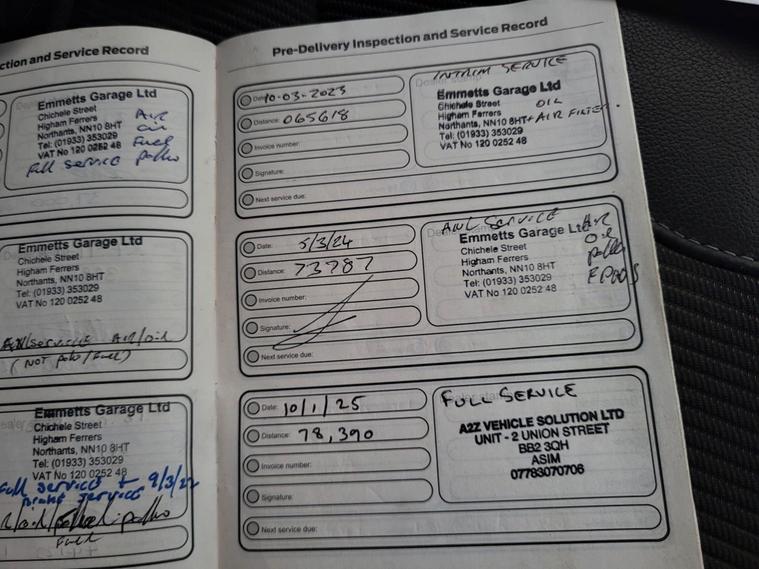 ction and Service Record
Emmetts Garage Ltd
Chichele Street
Higham Ferrers
Northants, NN10 8HT
Tel: (01933) 353029
VAT No 120 0252 48
AIR
OIL
Fuel
Full service
Emmetts Garage Ltd
Chichele Street
Higham Ferrers
Northants, NN10 8HT
Tel: (01933) 353029
VAT No 120 0252 48
service AIR/oil
(NOT
Emmetts Garage Ltd
Chichele Street
Higham Ferrers
Northants, NN10 8HT
Tel: (01933) 353029
VAT No 120 0252 48
Full service + 9/3/22
Brake service
Fuel
Pre-Delivery Inspection and Service Record
Date: 10-03-2023
Distance: 065618
Invoice number:
Signature:
Next service due:
INTRIM SERVICE
Emmetts Garage Ltd
Chichele Street
Higham Ferrers OIL
Northants, NN10 8HT + AIR FILTER.
Tel: (01933) 353029
VAT No 120 0252 48
Date: 5/3/24
Distance: 73787
Invoice number:
Signature:
Next service due:
SERVICE
Emmetts Garage Ltd
Chichele Street
Higham Ferrers
Northants, NN10 8HT
Tel: (01933) 353029
VAT No 120 0252 48
AIR
OIL
F PADS
Date: 10/1/25
Distance: 78,390
Invoice number:
Signature:
Next service due:
FULL SERVICE
A2Z VEHICLE SOLUTION LTD
UNIT - 2 UNION STREET
BB2 3QH
ASIM
07783070706